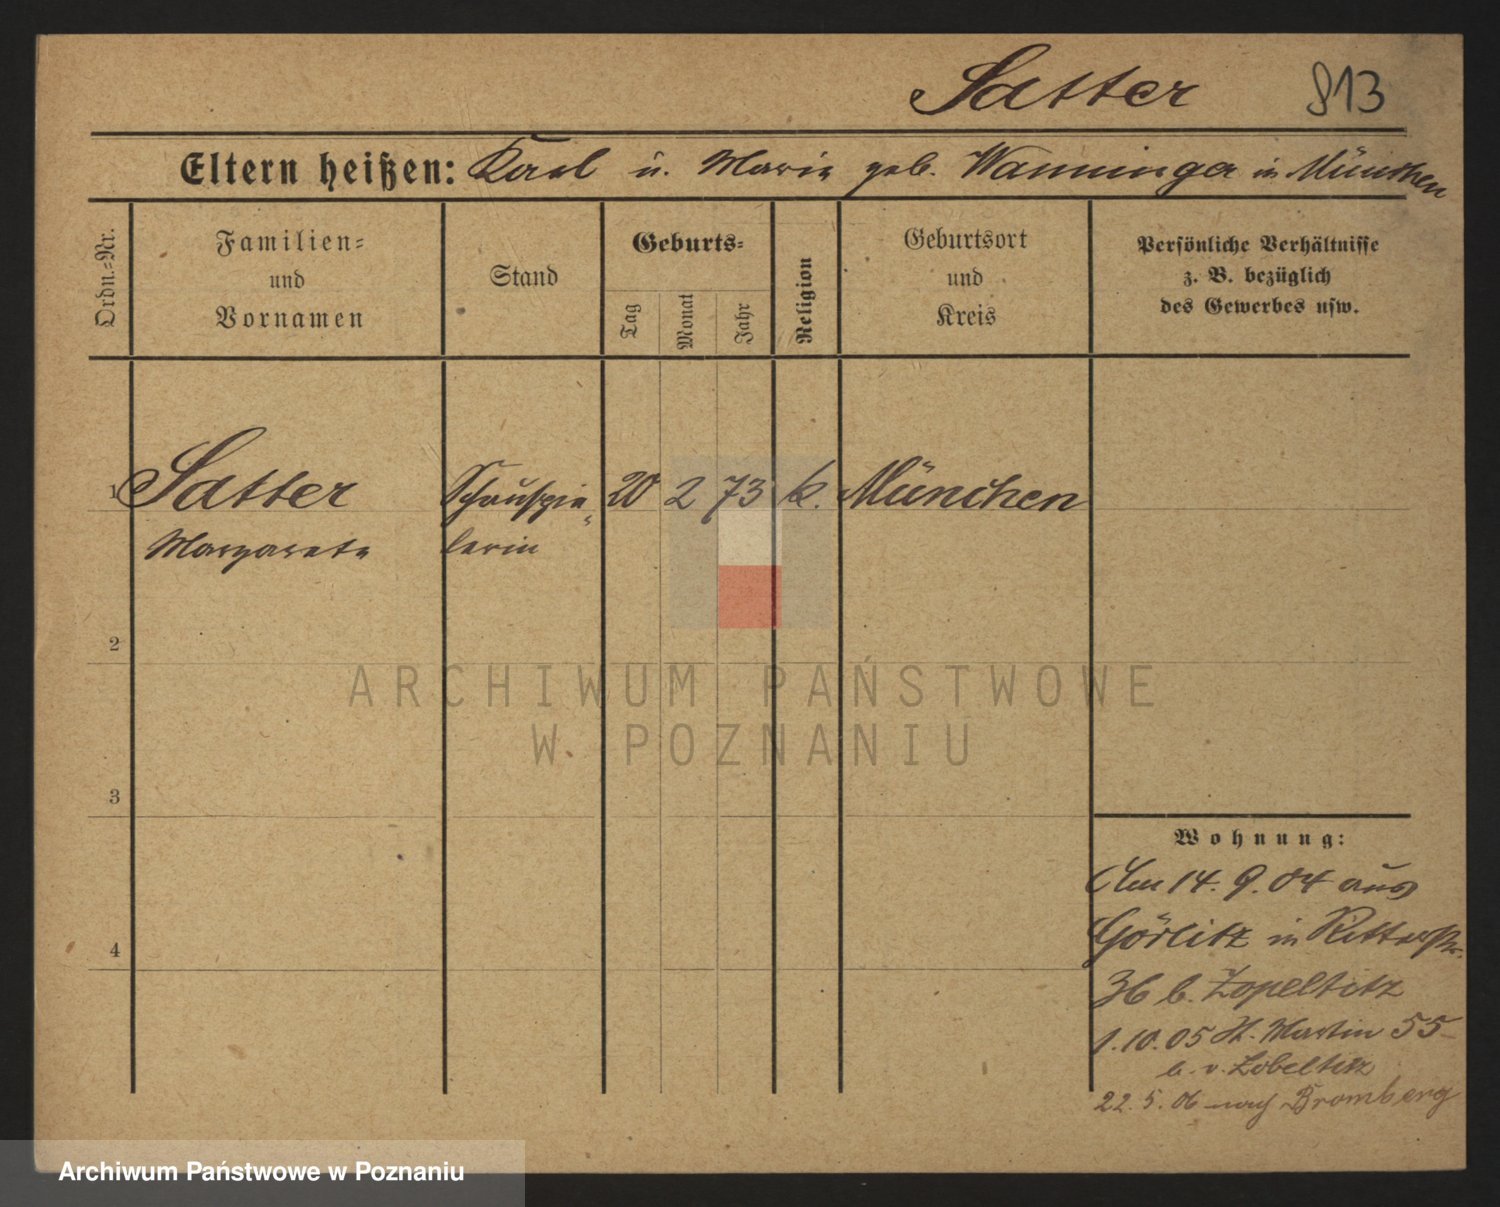 Satter 813
Eltern heißen: Karl u. Marie geb. Wanninger in München
Ordn.-Nr.
Familien-
und
Vornamen
Stand
Geburts-
Tag
Monat
Jahr
Religion
Geburtsort
und
Kreis
Persönliche Verhältnisse
z. B. bezüglich
des Gewerbes usw.
1 Satter Schauspie- 20 2 73 k. München
Margarete lerin
2
3
4
Wohnung:
Am 14. 9. 04 aus
Görlitz in Ritterstr.
36 b.
1.10.05 St. Martin 55
b. v.
22. 5. 06 nach Bromberg
ARCHIWUM PAŃSTWOWE
W POZNANIU
Archiwum Państwowe w Poznaniu